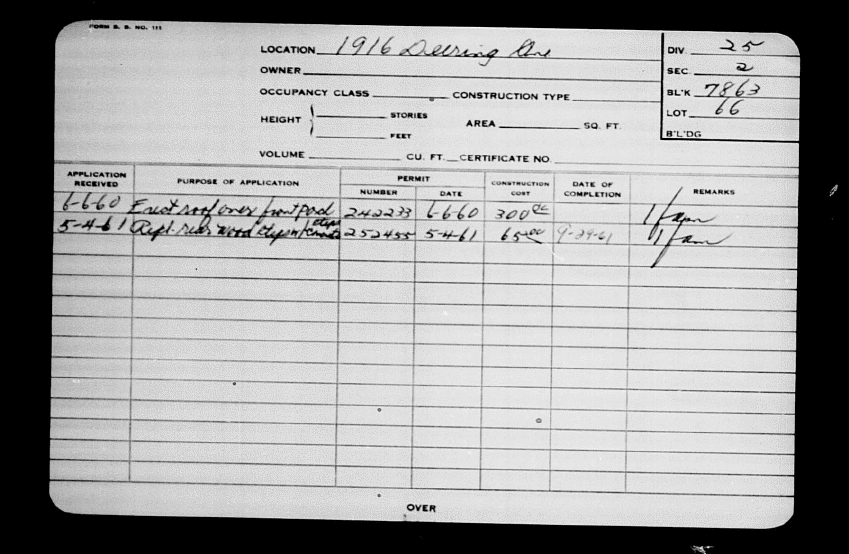 FORM B. B. NO. 111
LOCATION 1916 Deering Ave
DIV. 25
OWNER
SEC. 2
OCCUPANCY CLASS CONSTRUCTION TYPE
BL'K 7863
HEIGHT STORIES
FEET
AREA SQ. FT.
LOT 66
B'L'DG
VOLUME CU. FT. CERTIFICATE NO.
APPLICATION RECEIVED PURPOSE OF APPLICATION PERMIT NUMBER DATE CONSTRUCTION COST DATE OF COMPLETION REMARKS
6-6-60 Erect roof over front 242233 6-6-60 300 00 1 fam
5-4-61 Repl. rear wood steps w/ steps 252455 5-4-61 65 00 9-29-61 1 fam
OVER